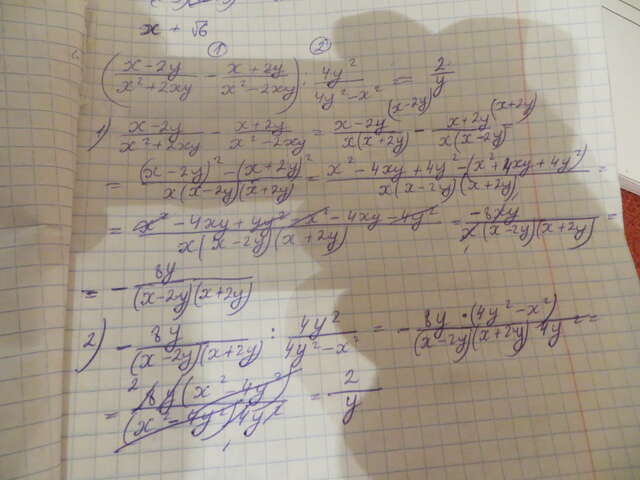 x + √6
① ②
(x-2y/x²+2xy - x+2y/x²-2xy) : 4y²/4y²-x² = 2/y
1) x-2y/x²+2xy - x+2y/x²-2xy = x-2y/x(x+2y) (x-2y) - x+2y/x(x-2y) (x+2y) =
= (x-2y)²-(x+2y)²/x(x-2y)(x+2y) = x²-4xy+4y²-(x²+4xy+4y²)/x(x-2y)(x+2y) =
= x²-4xy+4y²-x²-4xy-4y²/x(x-2y)(x+2y) = -8xy/x(x-2y)(x+2y) =
= - 8y/(x-2y)(x+2y)
2) - 8y/(x-2y)(x+2y) : 4y²/4y²-x² = - 8y·(4y²-x²)/(x-2y)(x+2y) 4y² =
= 2 8y(x²-4y²)/(x²-4y²) 4y² = 2/y